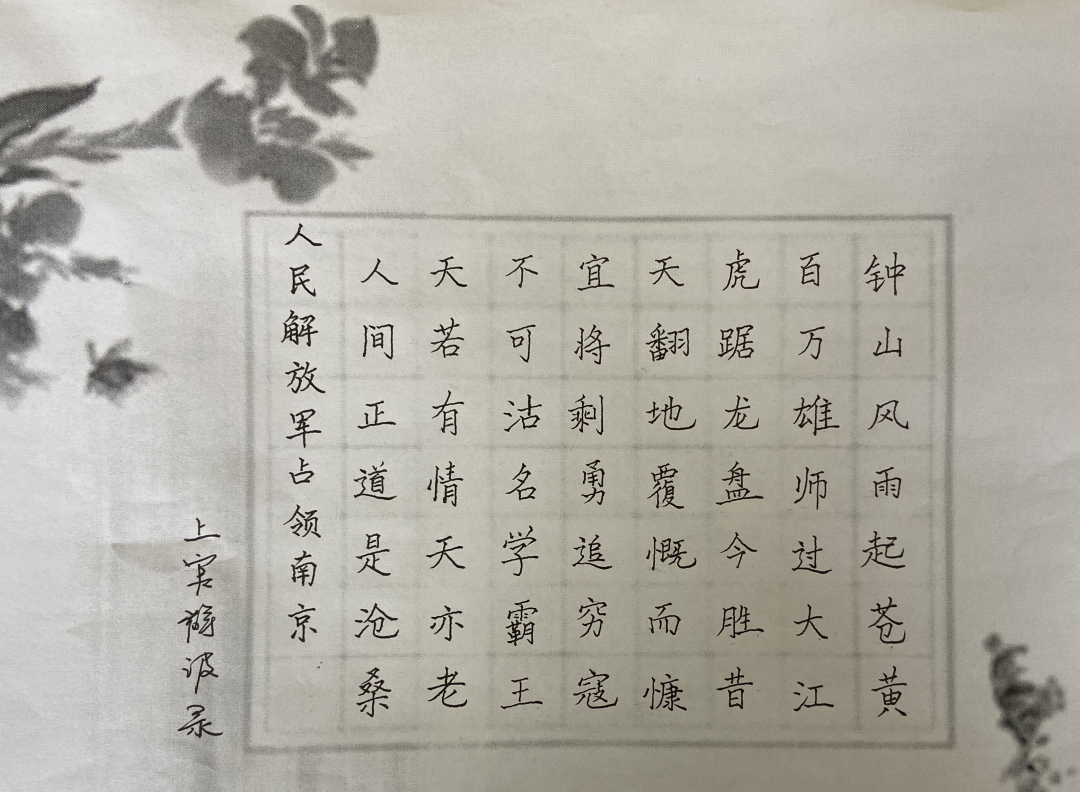 钟山风雨起苍黄
百万雄师过大江
虎踞龙盘今胜昔
天翻地覆慨而慷
宜将剩勇追穷寇
不可沽名学霸王
天若有情天亦老
人间正道是沧桑
人民解放军占领南京
上官 波录